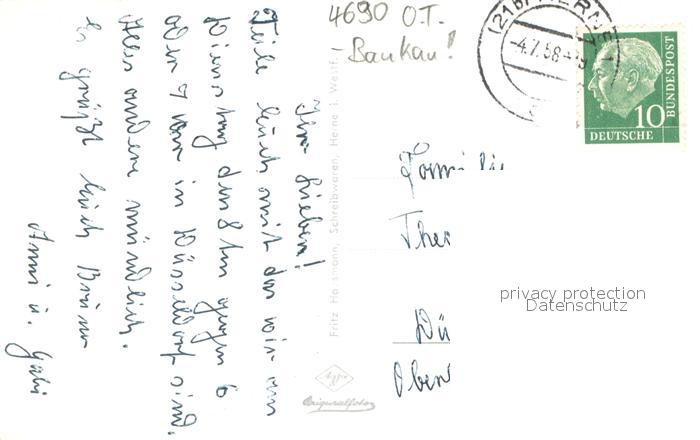 4690 O.T.
-Baukau!
(21b) HERNE 1
-4.7.58-
DEUTSCHE BUNDESPOST
10
Ihr Lieben!
Teile Euch mit das wir am
Dienstag den 8ten gegen 6
oder 7 Uhr in Düsseldorf sind.
Alles andere mündlich.
Es grüßt Euch Bruno
Anni u. Gabi
Fritz Hausmann, Schreibwaren, Herne i. Westf.
Agfa
Originalfoto
Familie
Theo
Dü
Ober
privacy protection
Datenschutz